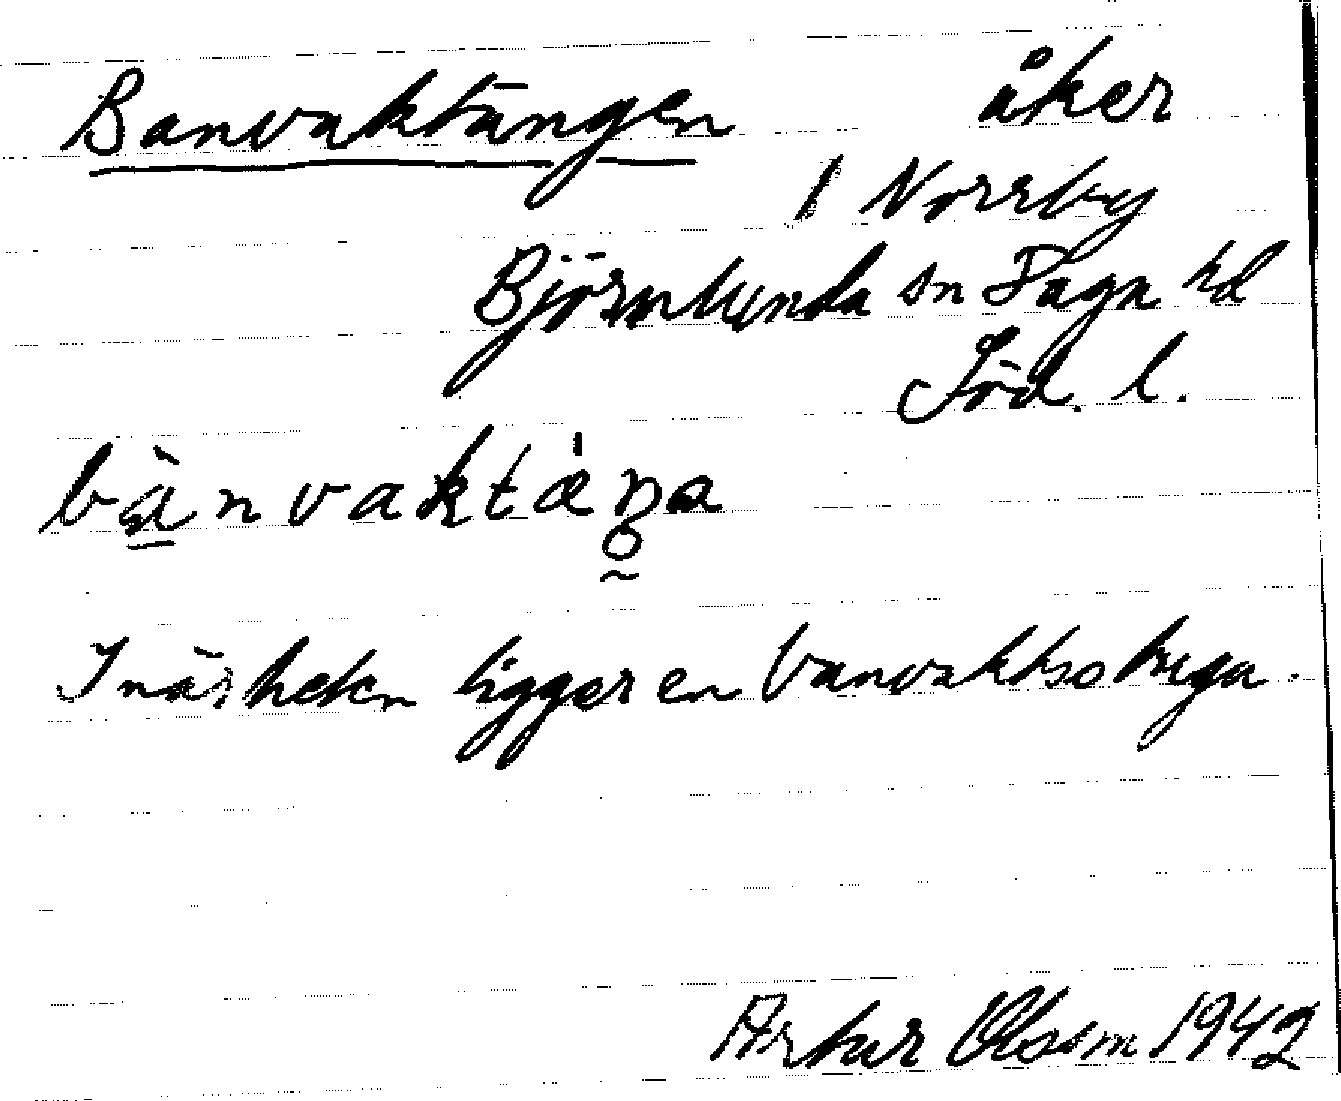 Banvaktängen åker
/ Norrby
Björnlunda sn Daga hd
Söd. l.
bànvaktæ̀ŋa
I närheten ligger en banvaktsstuga.
Artur Olsson 1942